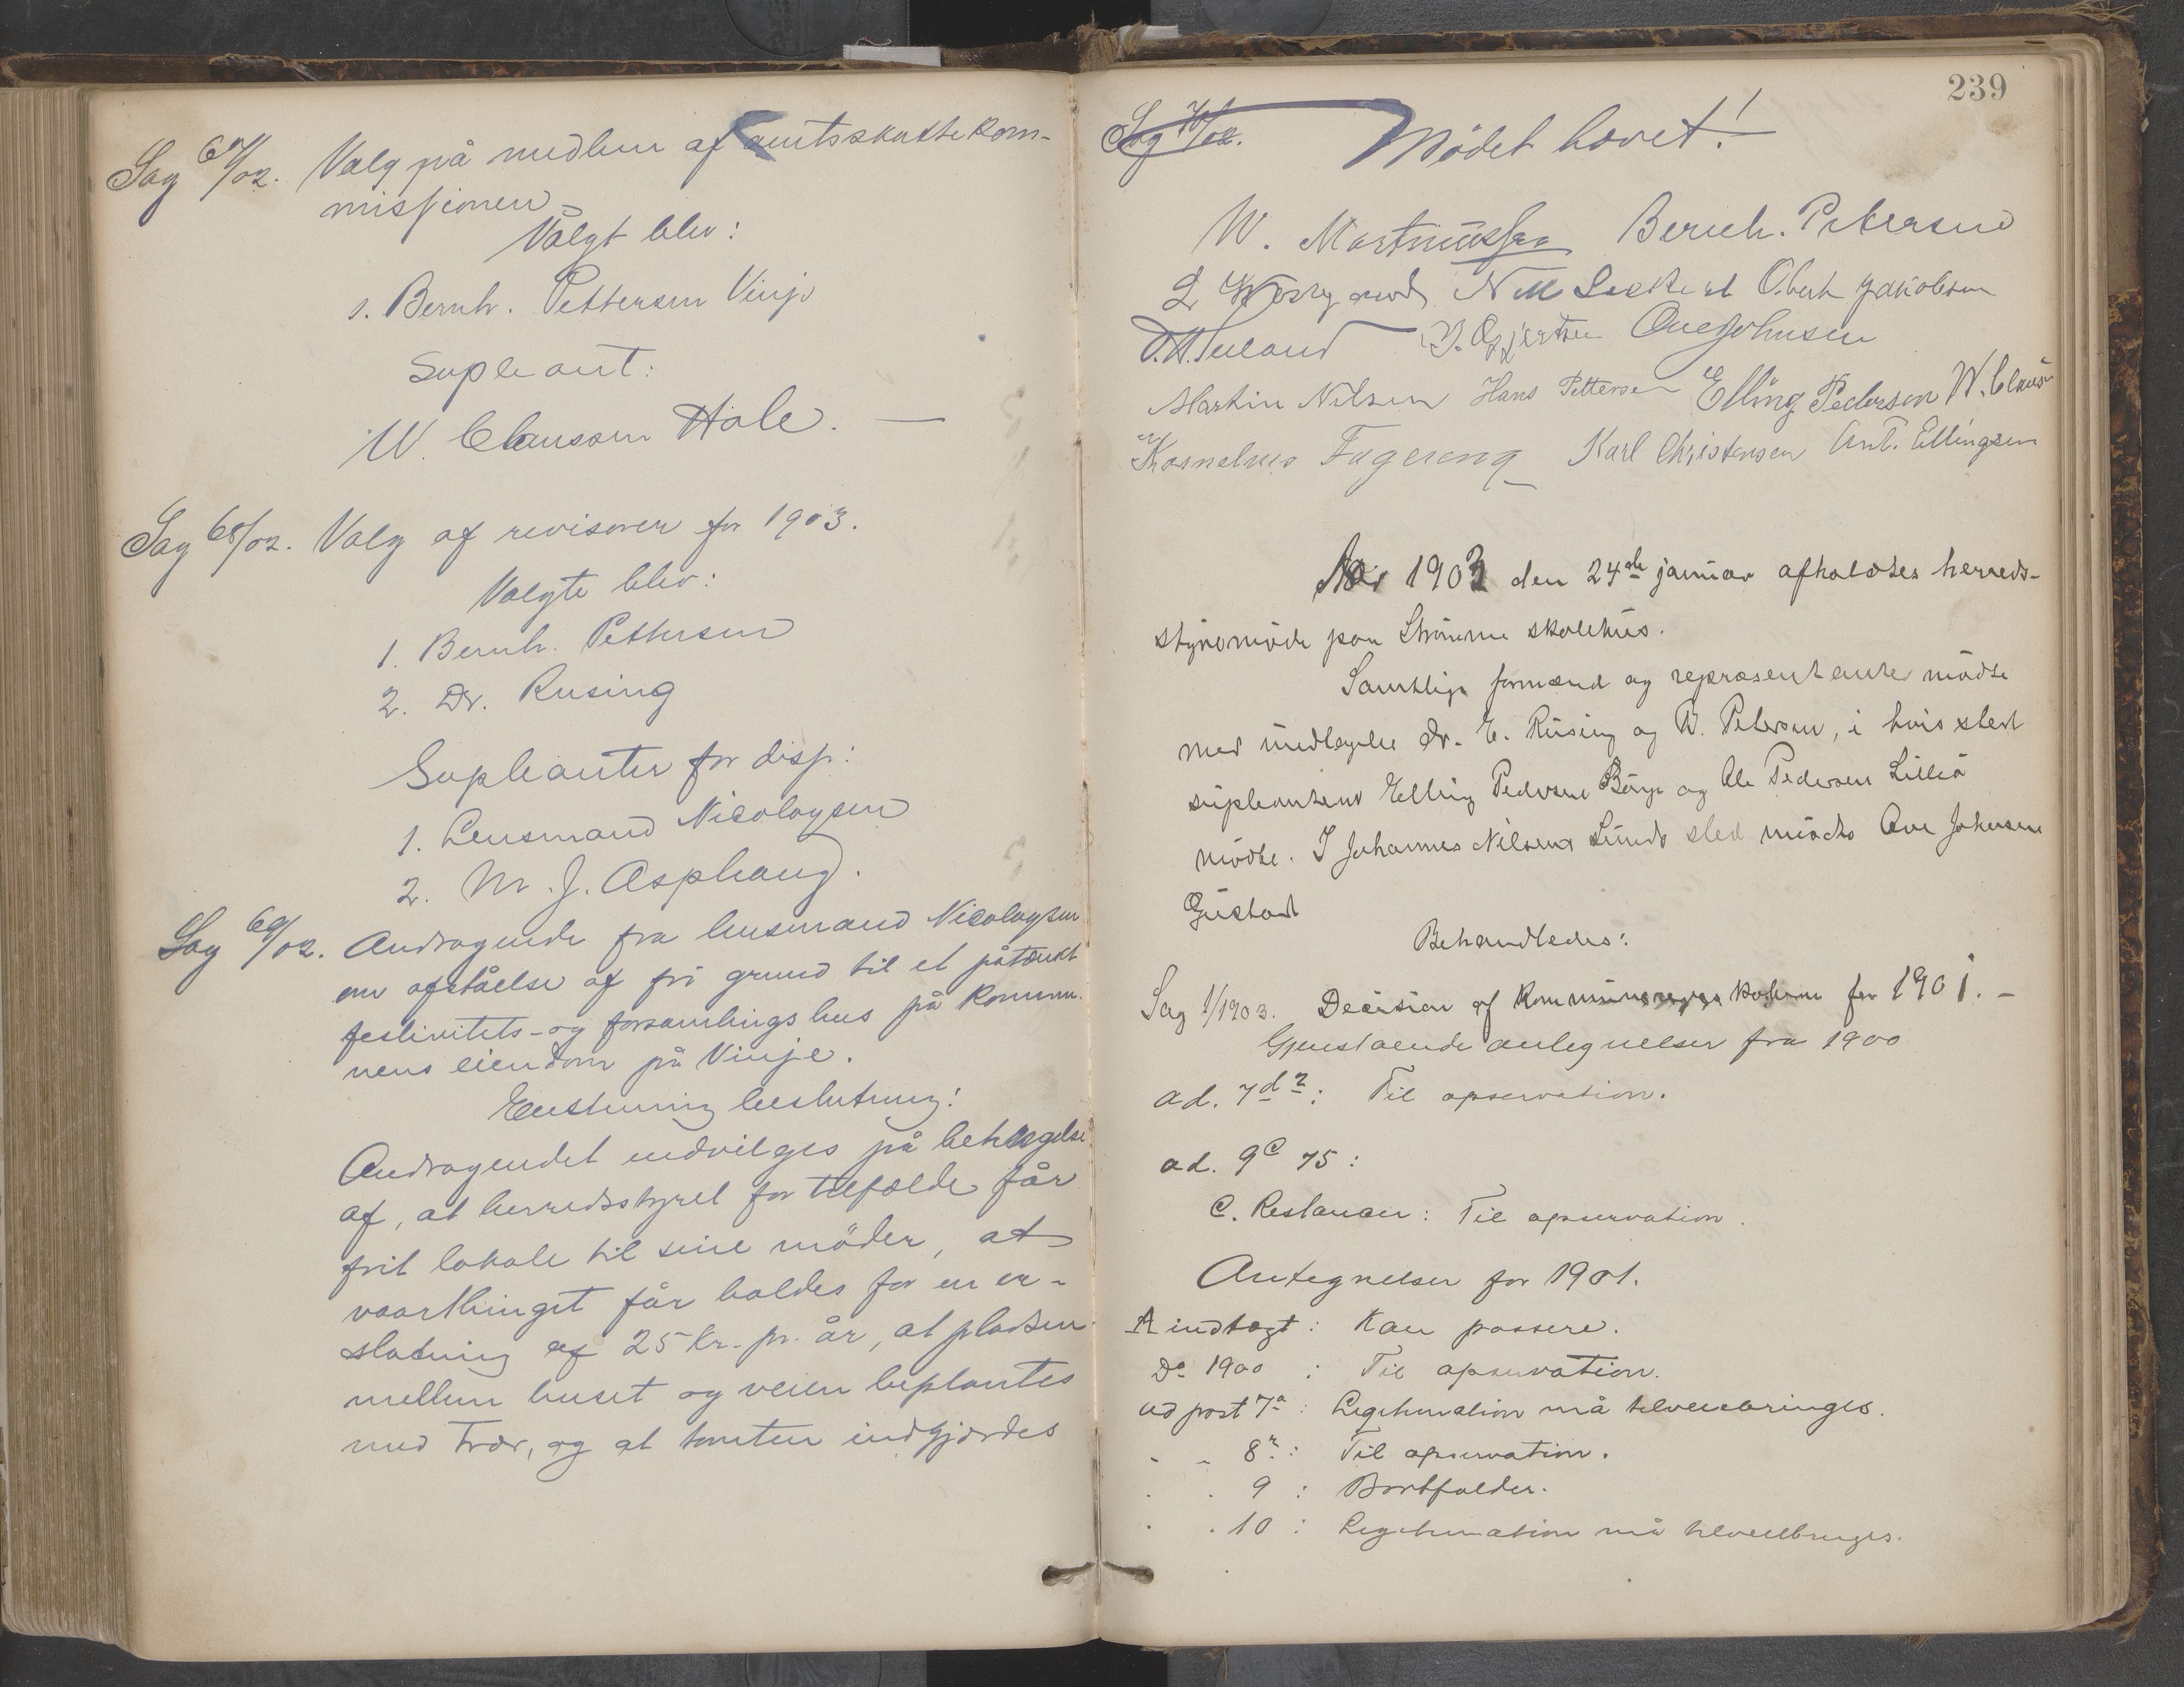 Sag 67/02. Valg på medlem af amtsskattekom-
missionen
Valgt blev:
1. Bernh. Pettersen Vinje
Supleant:
W. Claussen Hole. —
Sag 68/02. Valg af revisorer for 1903.
Valgte blev:
1. Bernh. Pettersen
2. Dr. Rusing
Supleanter for disp:
1. Lensmand Nicolaysen
2. M. J. Asphaug.
Sag 69/02. Andragende fra lensmand Nicolaysen
om afståelse af fri grund til et påtænkt
festivitets- og forsamlingshus på kommu-
nens eiendom på Vinje.
Enstemmig beslutning:
Andragendet indvilges på betingelse
af, at herredsstyret for tilfælde får
frit lokale til sine möder, at
vaarthinget får holdes for en er-
statning af 25 kr. pr. år, at pladsen
mellem huset og veien beplantes
med trær, og at tomten indgjærdes
239
Sag 70/02. Mödet hævet!
W. Martinussen Bernh. Petersen
Obert Jakobsen
Ove Johnsen
Martin Nilsen Hans Pettersen Elling Pederson W. Claus
Kornelius Fagereng Karl Christensen Ant. Ellingsen
År 1903 den 24de januar afholdtes herreds-
styremöde paa Strömme skolehus.
Samtlige formænd og repræsentanter mödte
med undtagelse Dr. E. Rüsing og B. Petersen, i hvis sted
supleanterne Elling Pedersen Börge og Ole Pedersen Lilleö
mödte. I Johannes Nilsens Lunds sted mödte Ove Johnsen
Gustad
Behandledes:
Sag 1/1903. Decision af kommunens kasse for 1901. —
Gjenstaaende antegnelser fra 1900
ad. 7 d 2: Til opservation.
ad. 9 C 75:
C. Restancer: Til opservation.
Antegnelser for 1901.
A indtægt: Kan passere.
Do 1900 : Til opservation.
ad post 7a: Legitimation må tilveiebringes.
" " 8: Til opservation.
" " 9: Bortfalder.
" " 10: Legitimation må tilveiebringes.